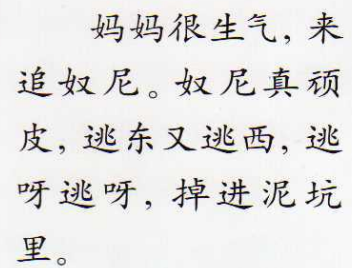 妈妈很生气，来
追奴尼。奴尼真顽
皮，逃东又逃西，逃
呀逃呀，掉进泥坑
里。